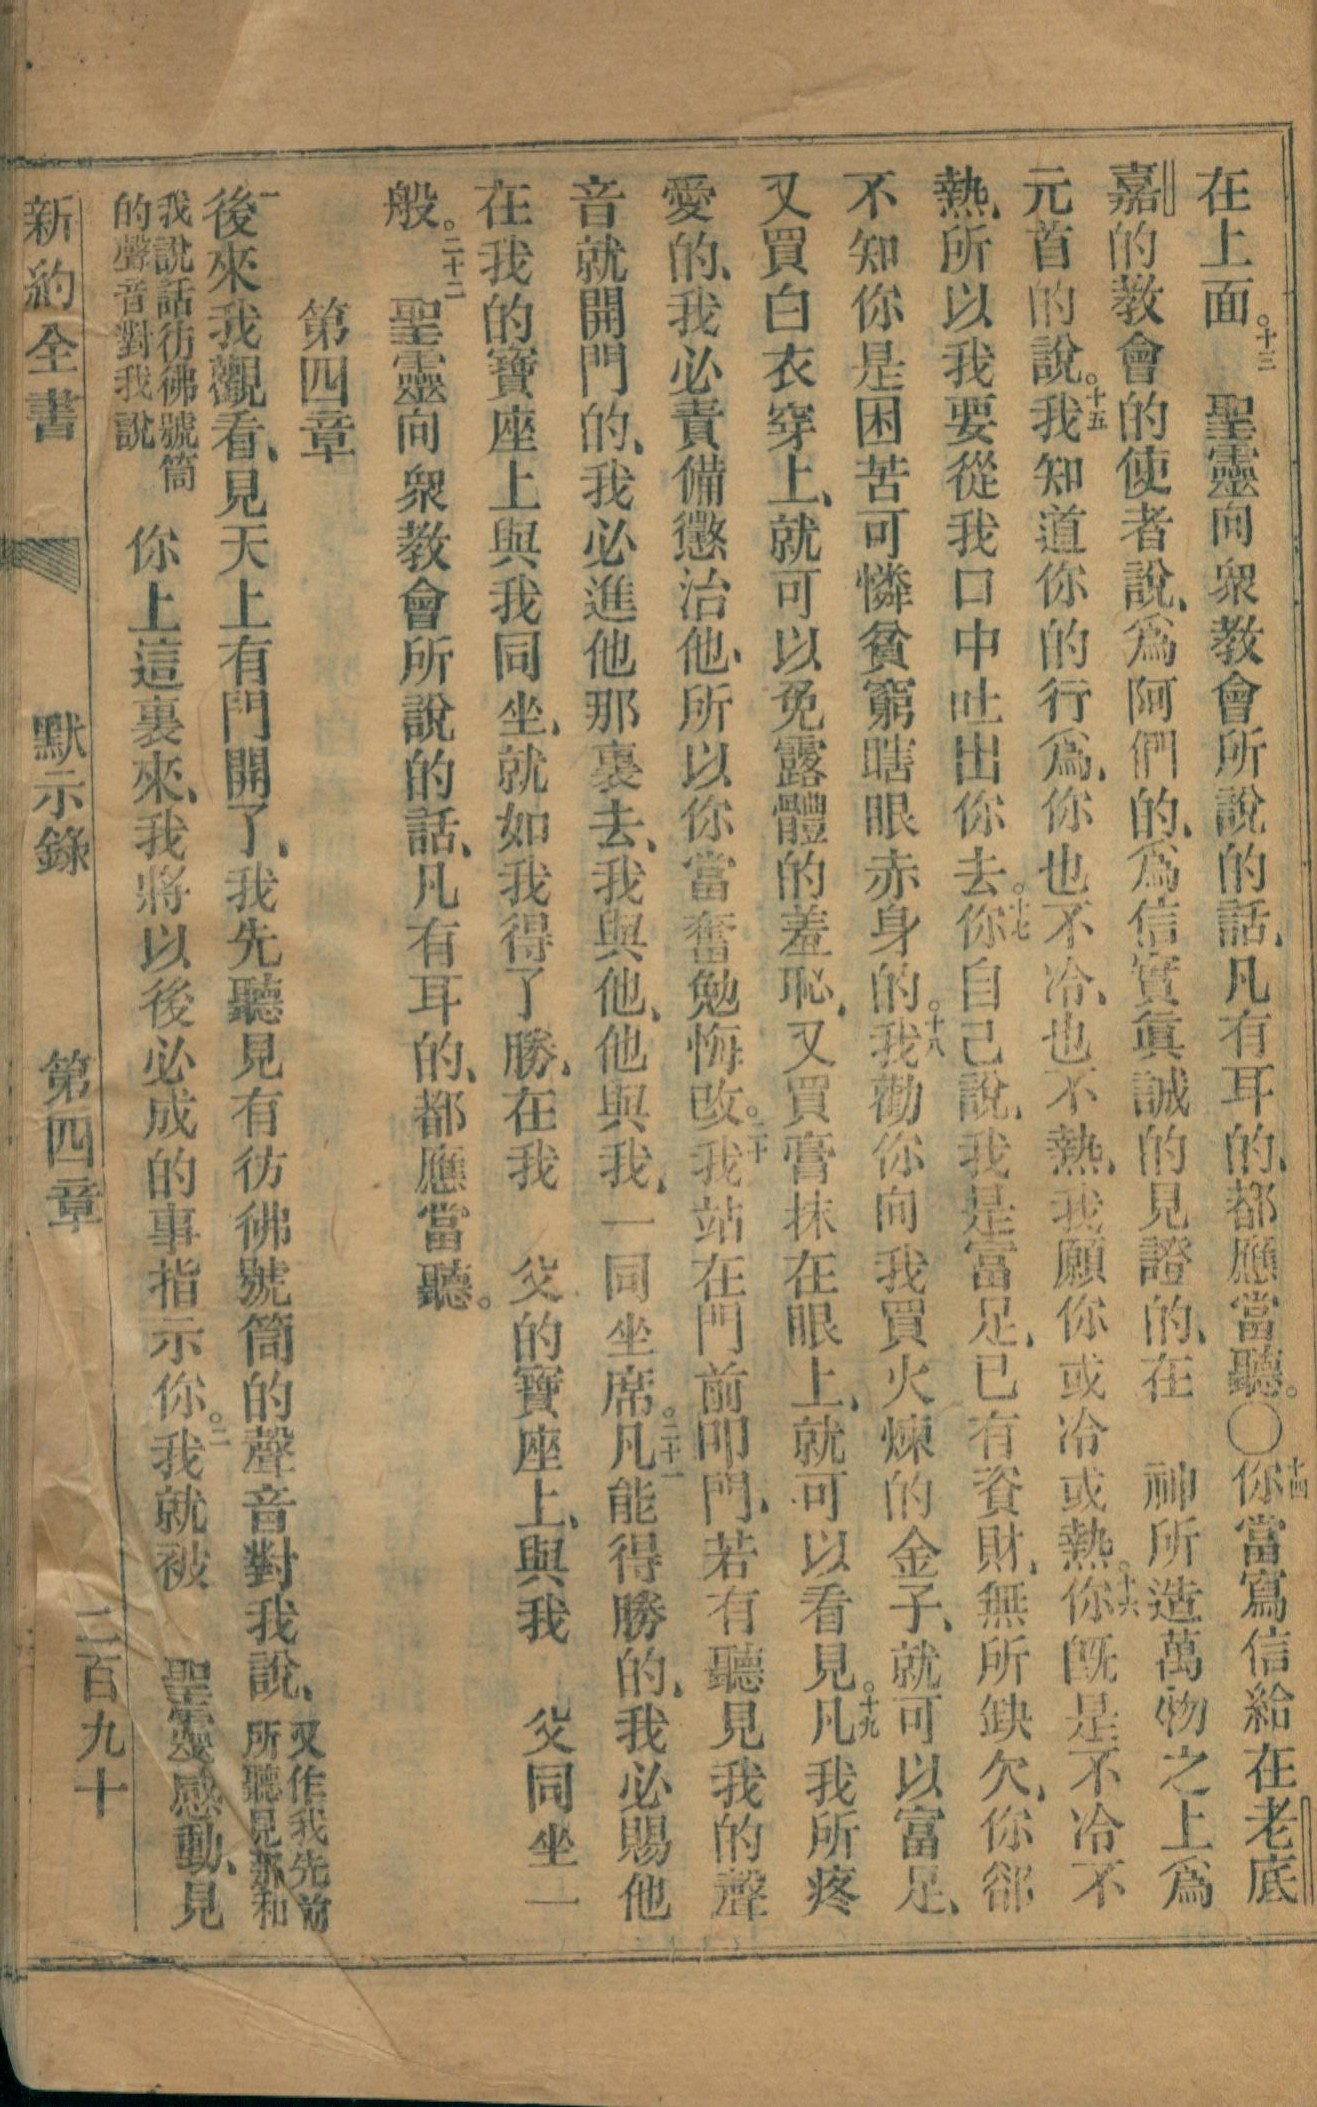 在上面。十三　聖靈向衆教會所說的話、凡有耳的、都應當聽。〇十四你當寫信給在老底
嘉的教會的使者說、爲阿們的、爲信實眞誠的見證的、在　神所造萬物之上爲
元首的說。十五我知道你的行爲、你也不冷、也不熱、我願你或冷或熱。十六你旣是不冷不
熱、所以我要從我口中吐出你去。十七你自己說、我是富足、已有資財、無所缺欠、你卻
不知你是困苦可憐貧窮瞎眼赤身的。十八我勸你向我買火煉的金子、就可以富足、
又買白衣穿上、就可以免露體的羞恥、又買膏抹在眼上、就可以看見。十九凡我所疼
愛的、我必責備懲治他、所以你當奮勉悔改。二十我站在門前叩門、若有聽見我的聲
音就開門的、我必進他那裏去、我與他、他與我、一同坐席。二十一凡能得勝的、我必賜他
在我的寶座上與我同坐、就如我得了勝、在我　父的寶座上、與我　父同坐一
般。二十二聖靈向衆教會所說的話、凡有耳的、都應當聽。
第四章
一後來我觀看、見天上有門開了、我先聽見有彷彿號筒的聲音對我說、又作我先前所聽見那和
我說話彷彿號筒的聲音對我說　你上這裏來、我將以後必成的事指示你。二我就被　聖靈感動、見
新約全書　默示錄　第四章　二百九十